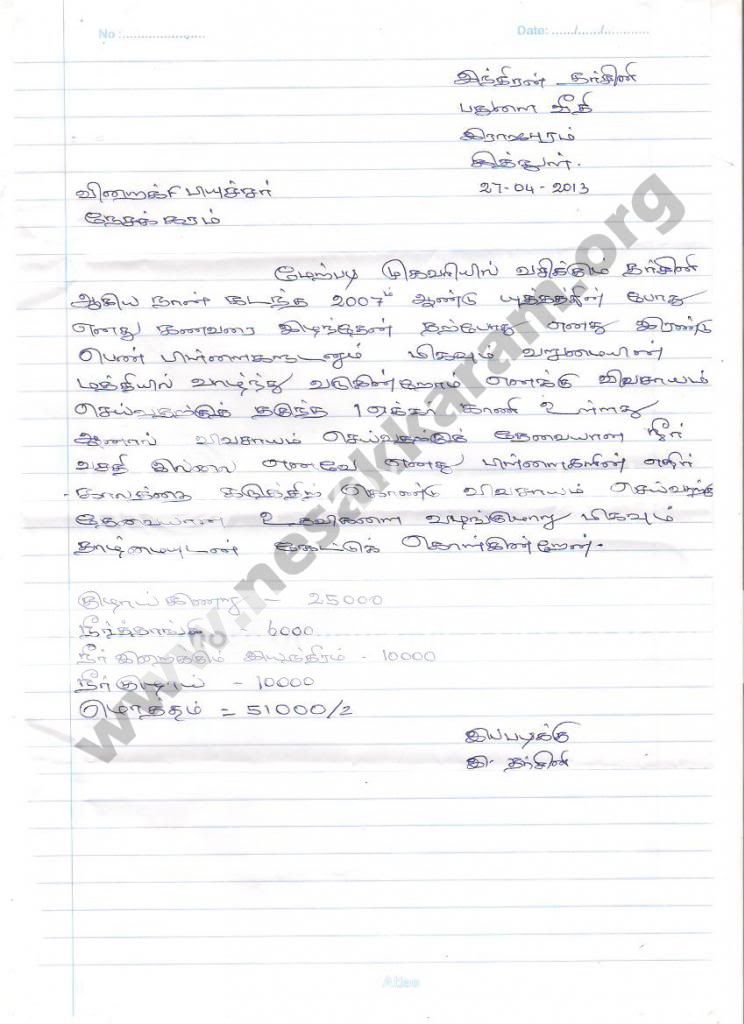 No :.....................
Date: ....../....../............
இந்திரன் தர்சினி
பதுளை வீதி
இராஜபுரம்
கித்துள்.
27-04-2013
நேசக்கரம்
மேற்படி முகவரியில் வசிக்கும் தர்சினி
ஆகிய நான் கடந்த 2007ம் ஆண்டு யுத்தத்தின் போது
எனது கணவரை இழந்தேன் தற்போது எனது இரண்டு
பெண் பிள்ளைகளுடனும் மிகவும் வறுமையின்
மத்தியில் வாழ்ந்து வருகின்றோம் எனக்கு விவசாயம்
செய்வதற்குத் தகுந்த 1 ஏக்கர் காணி உள்ளது
ஆனால் விவசாயம் செய்வதற்குத் தேவையான நீர்
வசதி இல்லை எனவே எனது பிள்ளைகளின் எதிர்
-காலத்தை கருத்திற் கொண்டு விவசாயம் செய்வதற்கு
தேவையான உதவிகளை வழங்குமாறு மிகவும்
தாழ்மையுடன் கேட்டுக் கொள்கின்றேன்.
குழாய் கிணறு - 25000
நீர்த்தாங்கி - 6000
நீர் இறைக்கும் இயந்திரம் - 10000
நீர் குழாய் - 10000
மொத்தம் = 51000/=
இப்படிக்கு
இ. தர்சினி
www.nesakkaram.org
Atlas